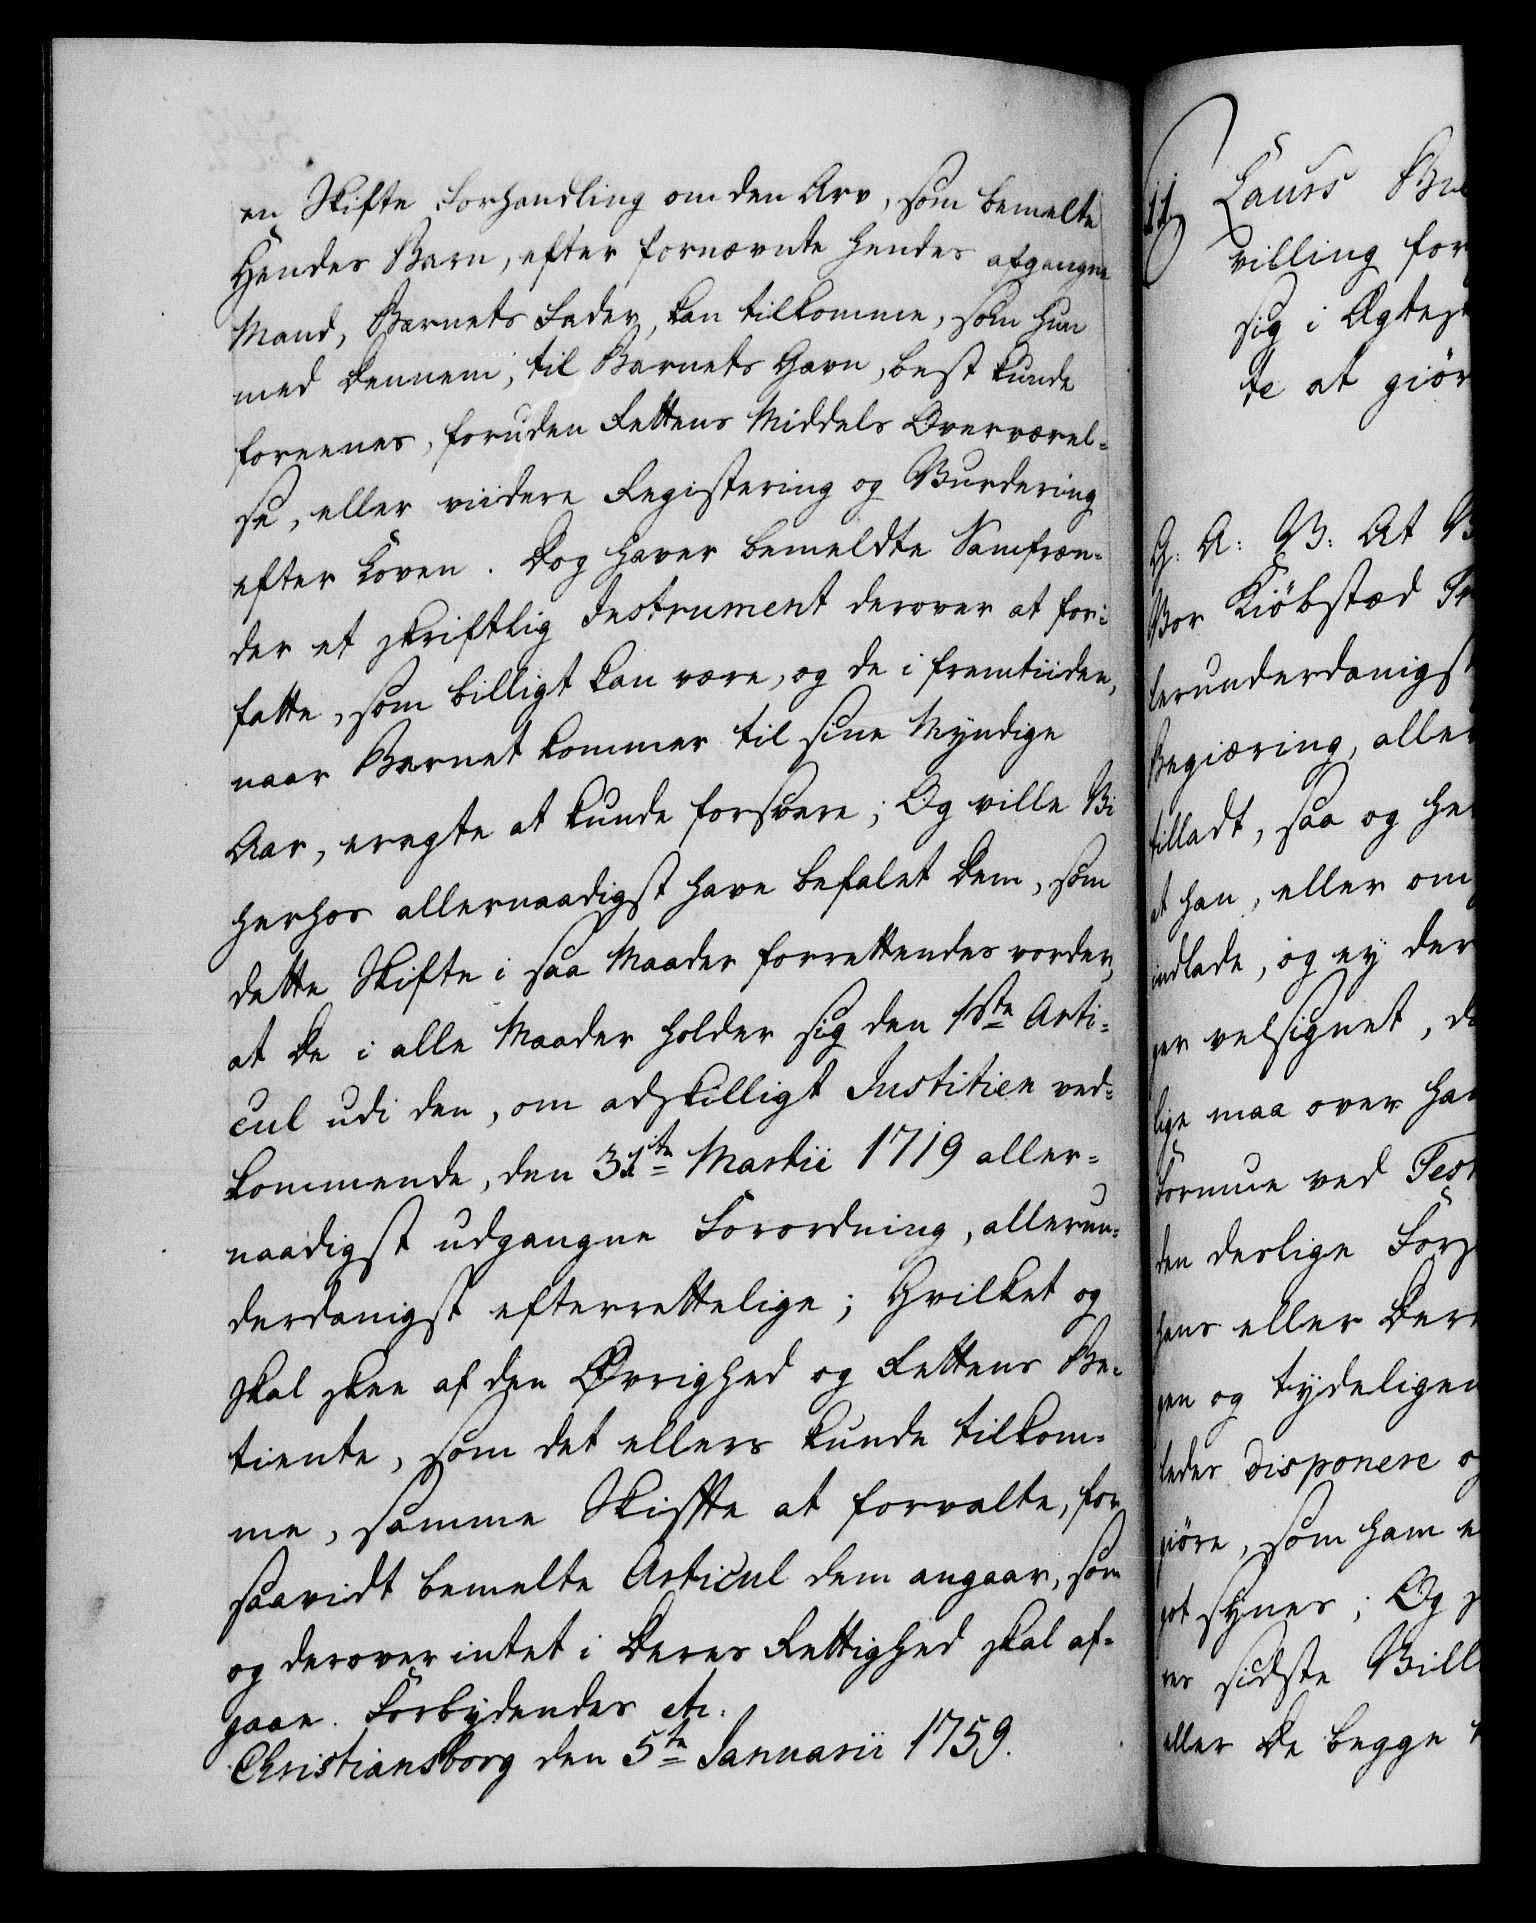 en Skifte Forhandling om den Arv, som bemelte
Hendes Barn, efter fornævnte hendes afgangne
Mand, Barnets Fader, kan tilkomme, som hun
med dennem, til Barnets Gavn, best kunde
foreenes, foruden Rettens Middels Overværel-
se, eller viidere Registering og Vurdering
efter Loven. Dog haver bemeldte Samfræn-
der et skriftlig Instrument derover at for-
fatte, som billigt kan være, og de i fremtiiden,
naar Barnet kommer til sine Myndige
Aar, eragte at kunde forsvare; Og ville Vi
herhos allernaadigst have befalet dem, som
dette Skifte i saa Maader forrettendes vorder,
at de i alle Maader holder sig den 1ste Arti-
cul udi den, om adskilligt Justitien ved-
kommende, den 31te Martii 1719 aller-
naadigst udgangne Forordning, allerun-
derdanigst efterrettelige; Hvilket og
skal skee af den Øvrighed og Rettens Be-
tiente, som det ellers kunde tilkom-
me, samme Skiffte at forvalte, for
saavidt bemelte Articul dem angaar, som
og derover intet i deres Rettighed skal af-
gaae. Forbydendes etc.
Christiansborg den 5te Januarii 1759.
11
Laurs
villing for
sig i
te at giør
G: A: V: At V
Vor Kiøbstæd
lerunderdanigst
Begiæring, aller
tilladt, saa og
at han, eller om
indlade, og ey der
ger velsignet,
lige maa over
Formue ved Test
den deslige
hans eller
gen og tydeligen
ledes disponere og
giøre, som ham
got synes; Og
res sidste Vill
eller de begge